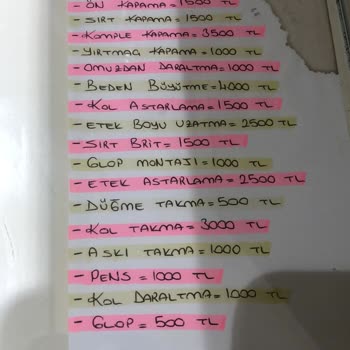 - ÖN KAPAMA = 1500 TL
- SIRT KAPAMA = 1500 TL
- KOMPLE KAPAMA = 3500 TL
- YIRTMAÇ KAPAMA = 1000 TL
- OMUZDAN DARALTMA = 1000 TL
- BEDEN BÜYÜTME = 4000 TL
- KOL ASTARLAMA = 1500 TL
- ETEK BOYU UZATMA = 2500 TL
- SIRT BRİT = 1500 TL
- GLOP MONTAJI = 1000 TL
- ETEK ASTARLAMA = 2500 TL
- DÜĞME TAKMA = 500 TL
- KOL TAKMA = 3000 TL
- ASKI TAKMA = 1000 TL
- PENS = 1000 TL
- KOL DARALTMA = 1000 TL
- GLOP = 500 TL